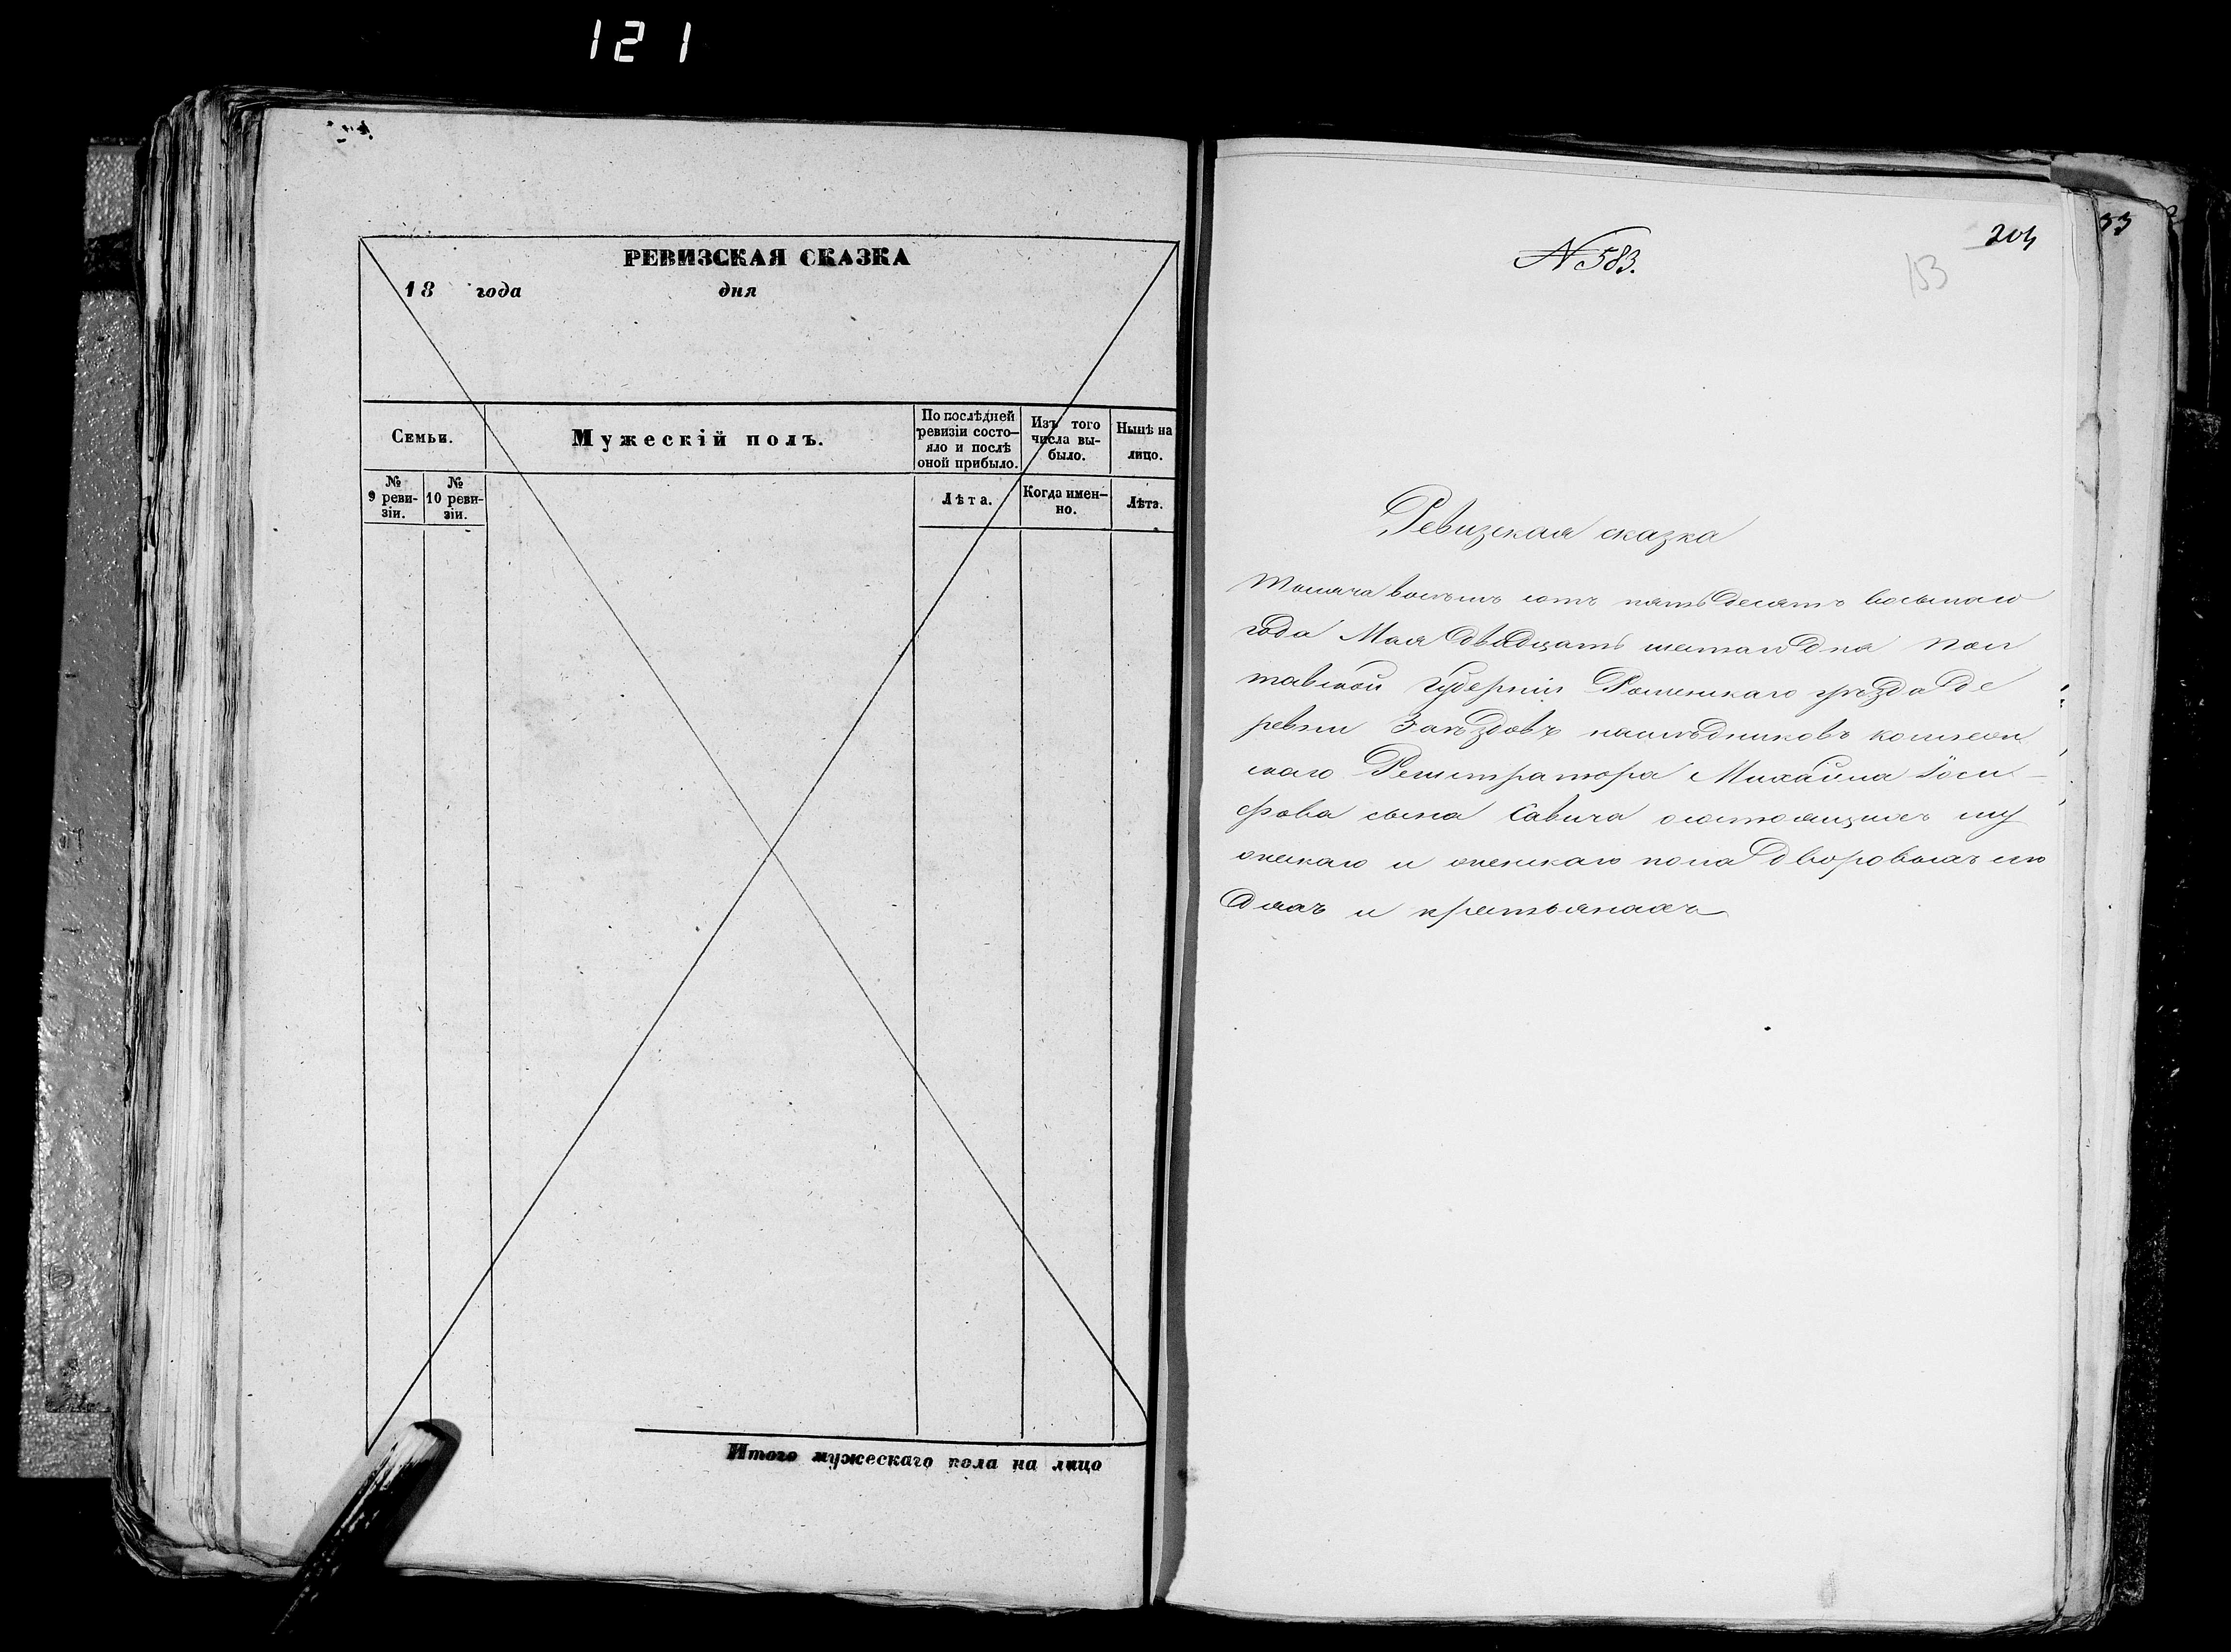 121
РЕВИЗСКАЯ СКАЗКА
18 года дня
Семьи.
Мужескій полъ.
По послѣдней ревизіи состо-
яло и послѣ
оной прибыло.
Изъ того
числа вы-
было.
Нынѣ на
лицо.
№
9 реви-
зіи.
№
10 реви-
зіи.
Лѣта.
Когда имен-
но.
Лѣта.
Итого мужескаго пола на лицо
N 583.
204
153
33
Ревизская сказка
Тысяча восемь сотъ пятьдесятъ восьмого
года Мая двадцать шестого дня Пол
тавской Губерніи Роменскаго уѣзда де
ревни Заѣздовъ наслѣдниковъ коллеж
скаго Регистратора Михайла Іоси-
фова сына Савича о состоящихъ му
жескаго и женскаго пола дворовыхъ лю
дяхъ и крестьянахъ